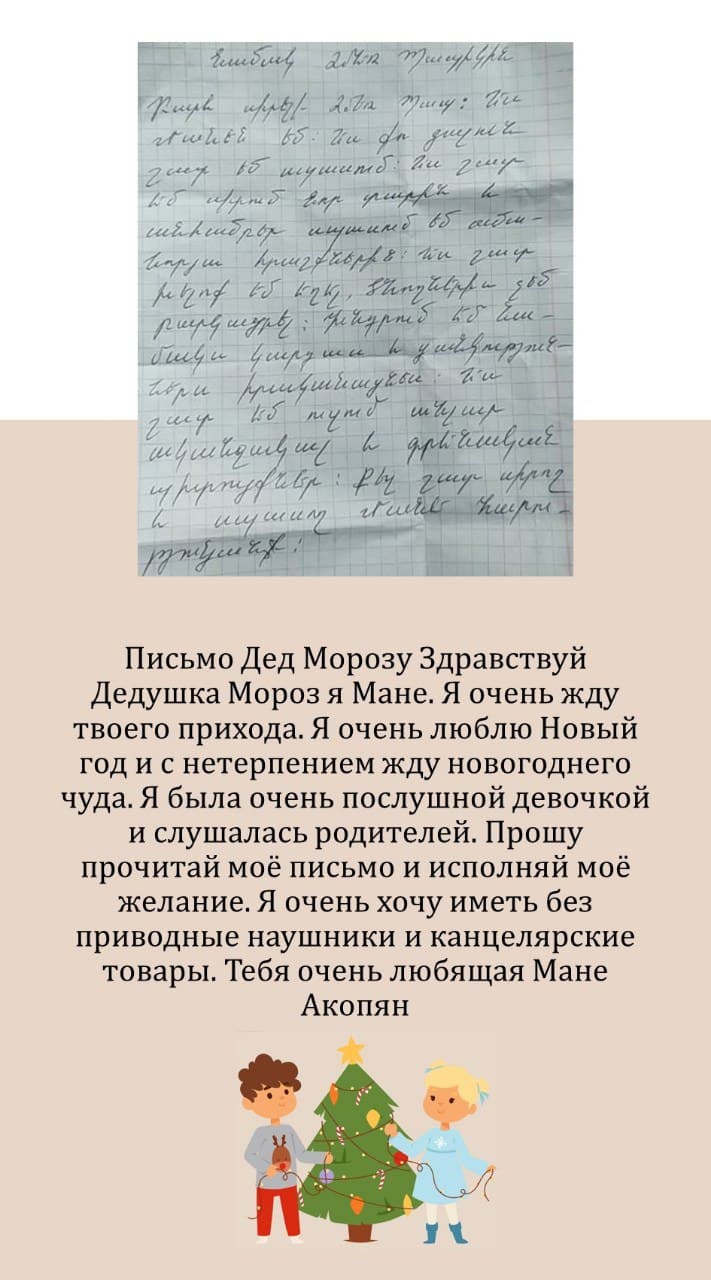 Նամակ Ձմեռ Պապիկին
Բարև սիրելի Ձմեռ Պապ: Ես
Մանեն եմ: Ես քո գալուն
շատ եմ սպասում: Ես շատ
եմ սիրում Նոր տարին և
անհամբեր սպասում եմ ամա-
նորյա հրաշքներին: Ես շատ
խելոք եմ եղել, ծնողներիս չեմ
բարկացրել: Խնդրում եմ նա-
մակս կարդա և ցանկություն-
ներս իրականացնես: Ես
շատ եմ ուզում անլար
ականջակալ և գրենական
պիտույքներ: Քեզ շատ սիրող
և սպասող Մանե Հարու-
թյունյան:
Письмо Дед Морозу Здравствуй
Дедушка Мороз я Мане. Я очень жду
твоего прихода. Я очень люблю Новый
год и с нетерпением жду новогоднего
чуда. Я была очень послушной девочкой
и слушалась родителей. Прошу
прочитай моё письмо и исполняй моё
желание. Я очень хочу иметь без
приводные наушники и канцелярские
товары. Тебя очень любящая Мане
Акопян